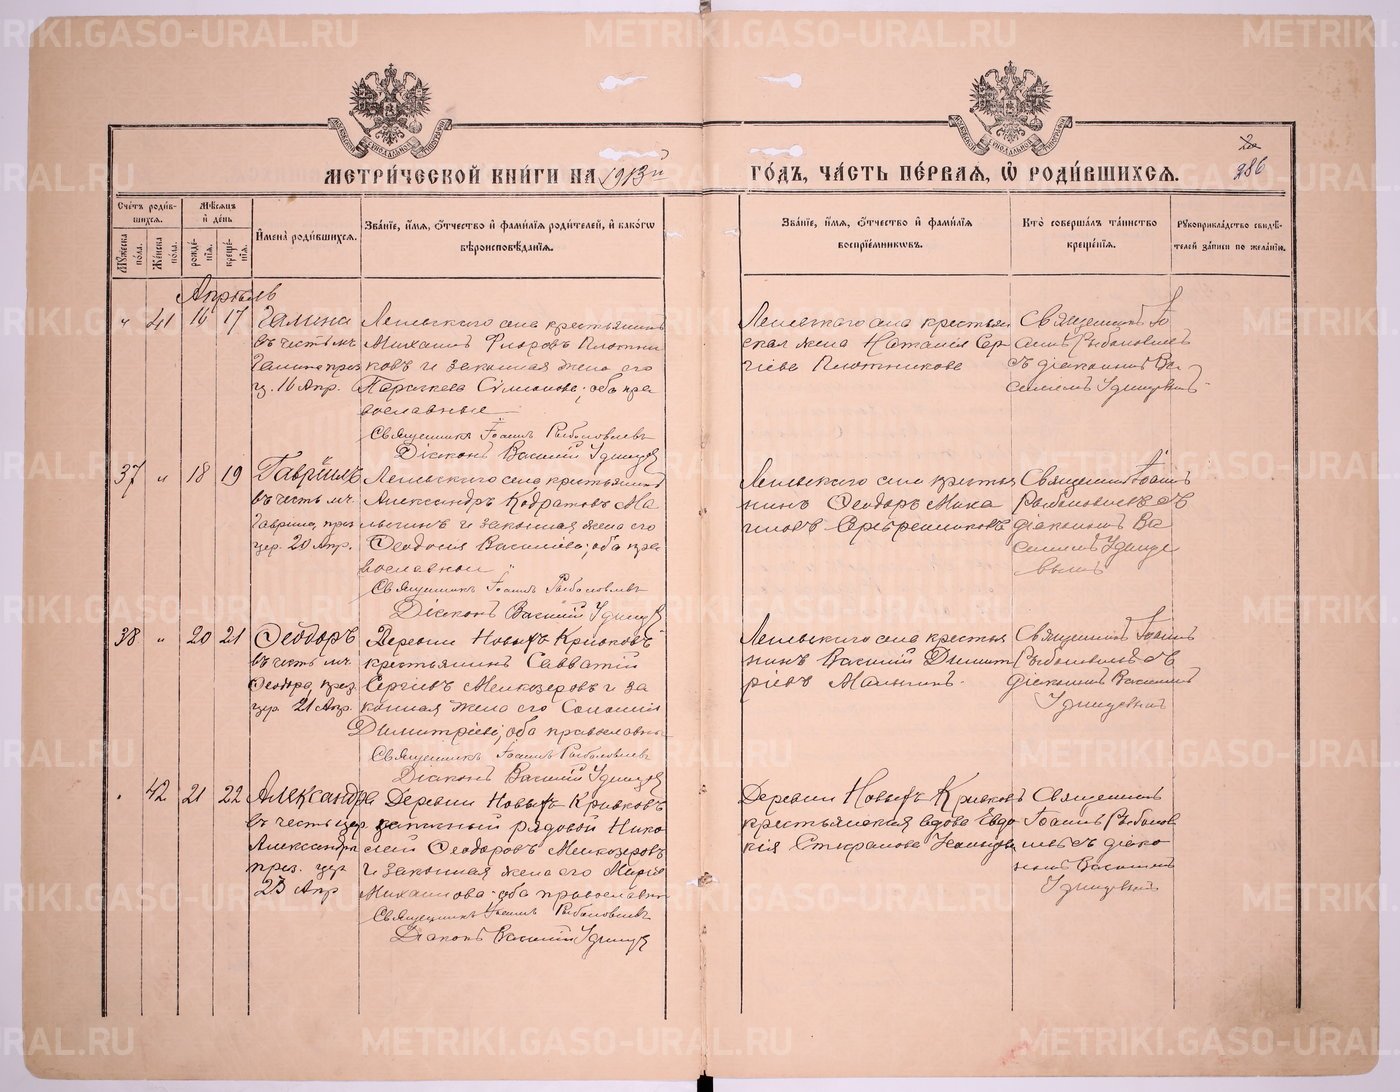 МЕТРИ́ЧЕСКОЙ КНИ́ГИ НА 1913й ГО́ДЪ, ЧА́СТЬ ПЕ́РВАЯ, Ѽ РОДИ́ВШИХСЯ.
286
Сче́тъ роди́в-
шихся.
Мꙋ́жеска
по́ла.
Же́нска
по́ла.
Мѣ́сяцъ
и҆ день
рожде́-
нїя.
креще́-
нїя.
И҆мена̀ роди́вшихся.
Зва́нїе, и҆́мя, ѻ҆́тчество и҆ фами́лїя роди́телей, и҆ како́гѡ
вѣроисповѣ́данїя.
Зва́нїе, и҆́мя, ѻ҆́тчество и҆ фами́лїя
воспрїе́мниковъ.
Кто̀ соверша́лъ та́инство
креще́нїя.
Рꙋкоприкла́дство свидѣ́-
телей за́писи по жела́нїю.
Апрѣль
„ 41 16 17 Галина
въ честь мч.
Галины праз
16 Апр.
села крестьянинъ
Михаилъ Флоровъ Плотни
ковъ и законная жена его
Параскева; оба пра
вославные
Священникъ Іоаннъ Рыболовлевъ
Діаконъ Василій Удинцевъ
села крестьян
ская жена Наталія Сер
гіева Плотникова
Священникъ Іо
аннъ Рыболовлевъ
съ діакономъ Ва
силіемъ Удинцевымъ
37 „ 18 19 Гавріилъ
въ честь мч.
Гавріила, праз
20 Апр.
села крестьянинъ
Александръ Кодратовъ Ма
льгинъ и законная жена его
Ѳеодосія Васильева; оба пра
вославные
Священникъ Іоаннъ Рыболовлевъ
Діаконъ Василій Удинцевъ
села кресть
нинъ Ѳеодоръ Миха
иловъ Серебренниковъ
Священникъ Іоаннъ
Рыболовлевъ съ
діакономъ Ва
силіемъ Удинце
вымъ
38 „ 20 21 Ѳеодоръ
въ честь мч.
Ѳеодора, праз.
21 Апр.
Деревни Новыхъ Кривковъ
крестьянинъ Савватій
Сергіевъ Мелкозеровъ и за
конная жена его Соломія
Димитріева; оба православны
Священникъ Іоаннъ Рыболовлевъ
Діаконъ Василій Удинцевъ
села крестья
нинъ Василій Димит
ріевъ Мальгинъ.
Священникъ Іоаннъ
Рыболовлевъ съ
діакономъ Василіемъ
Удинцевымъ
42 21 22 Александра
въ честь цар
Александры
праз. цер
23 Апр
Деревни Новыхъ Кривковъ
рядовой Нико
лай Ѳеодоровъ Мелкозеровъ
и законная жена его Марія
Михаилова оба православн
Священникъ Іоаннъ Рыболовлевъ
Діаконъ Василій Удинце
Деревни Новыхъ Кривковъ
крестьянская вдова Евдо
кія Стефанова
Священникъ
Іоаннъ Рыболов
левъ съ діако
номъ Василіемъ
Удинцевымъ
METRIKI.GASO-URAL.RU